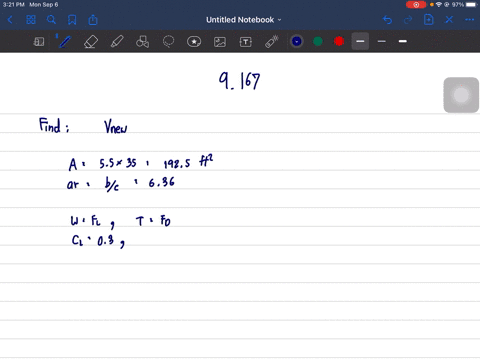 3:21 PM Mon Sep 6
97%
Untitled Notebook
9.167
Find: Vnew
A = 5.5 × 35 = 192.5 ft²
ar = b/c = 6.36
W = FL, T = FD
CL = 0.3,